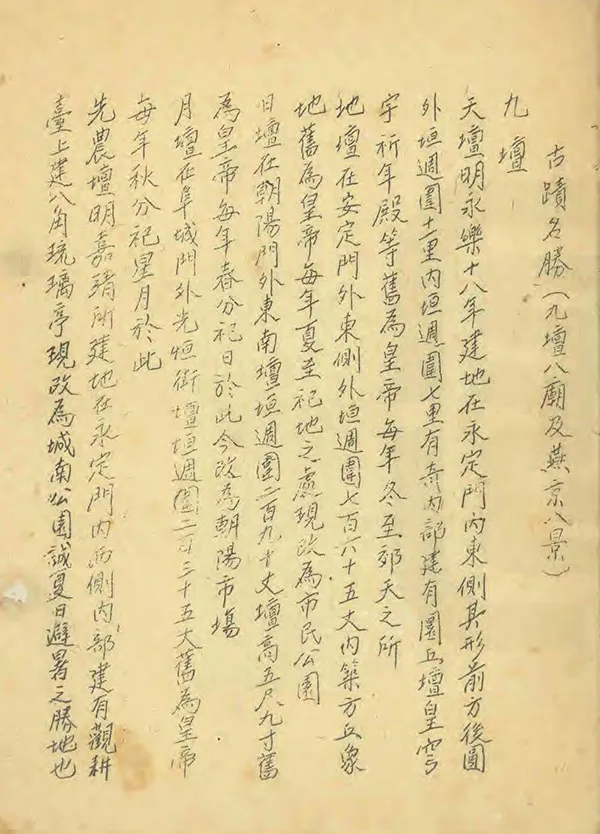 古蹟名勝（九壇八廟及燕京八景）
九壇
天壇明永樂十八年建地在永定門內東側其形前方後圓
外垣週圍十里內垣週圍七里有奇內部建有圜丘壇皇穹
宇祈年殿等舊為皇帝每年冬至郊天之所
地壇在安定門外東側外垣週圍七百六十五丈內築方丘象
地舊為皇帝每年夏至祀地之處現改為市民公園
日壇在朝陽門外東南壇垣週圍二百九十丈壇高五尺九寸舊
為皇帝每年春分祀日於此今改為朝陽市場
月壇在阜城門外光恒街壇垣週圍二百三十五丈舊為皇帝
每年秋分祀星月於此
先農壇明嘉靖所建地在永定門內西側內部建有觀耕
臺上建八角琉璃亭現改為城南公園誠夏日避暑之勝地也